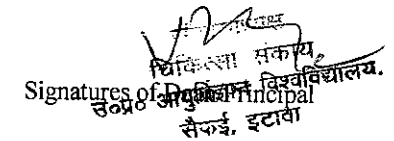 चिकित्सा संकाय,
Signatures of Dean/Principal
उ०प्र० आयुर्विज्ञान विश्वविद्यालय.
सैफई, इटावा